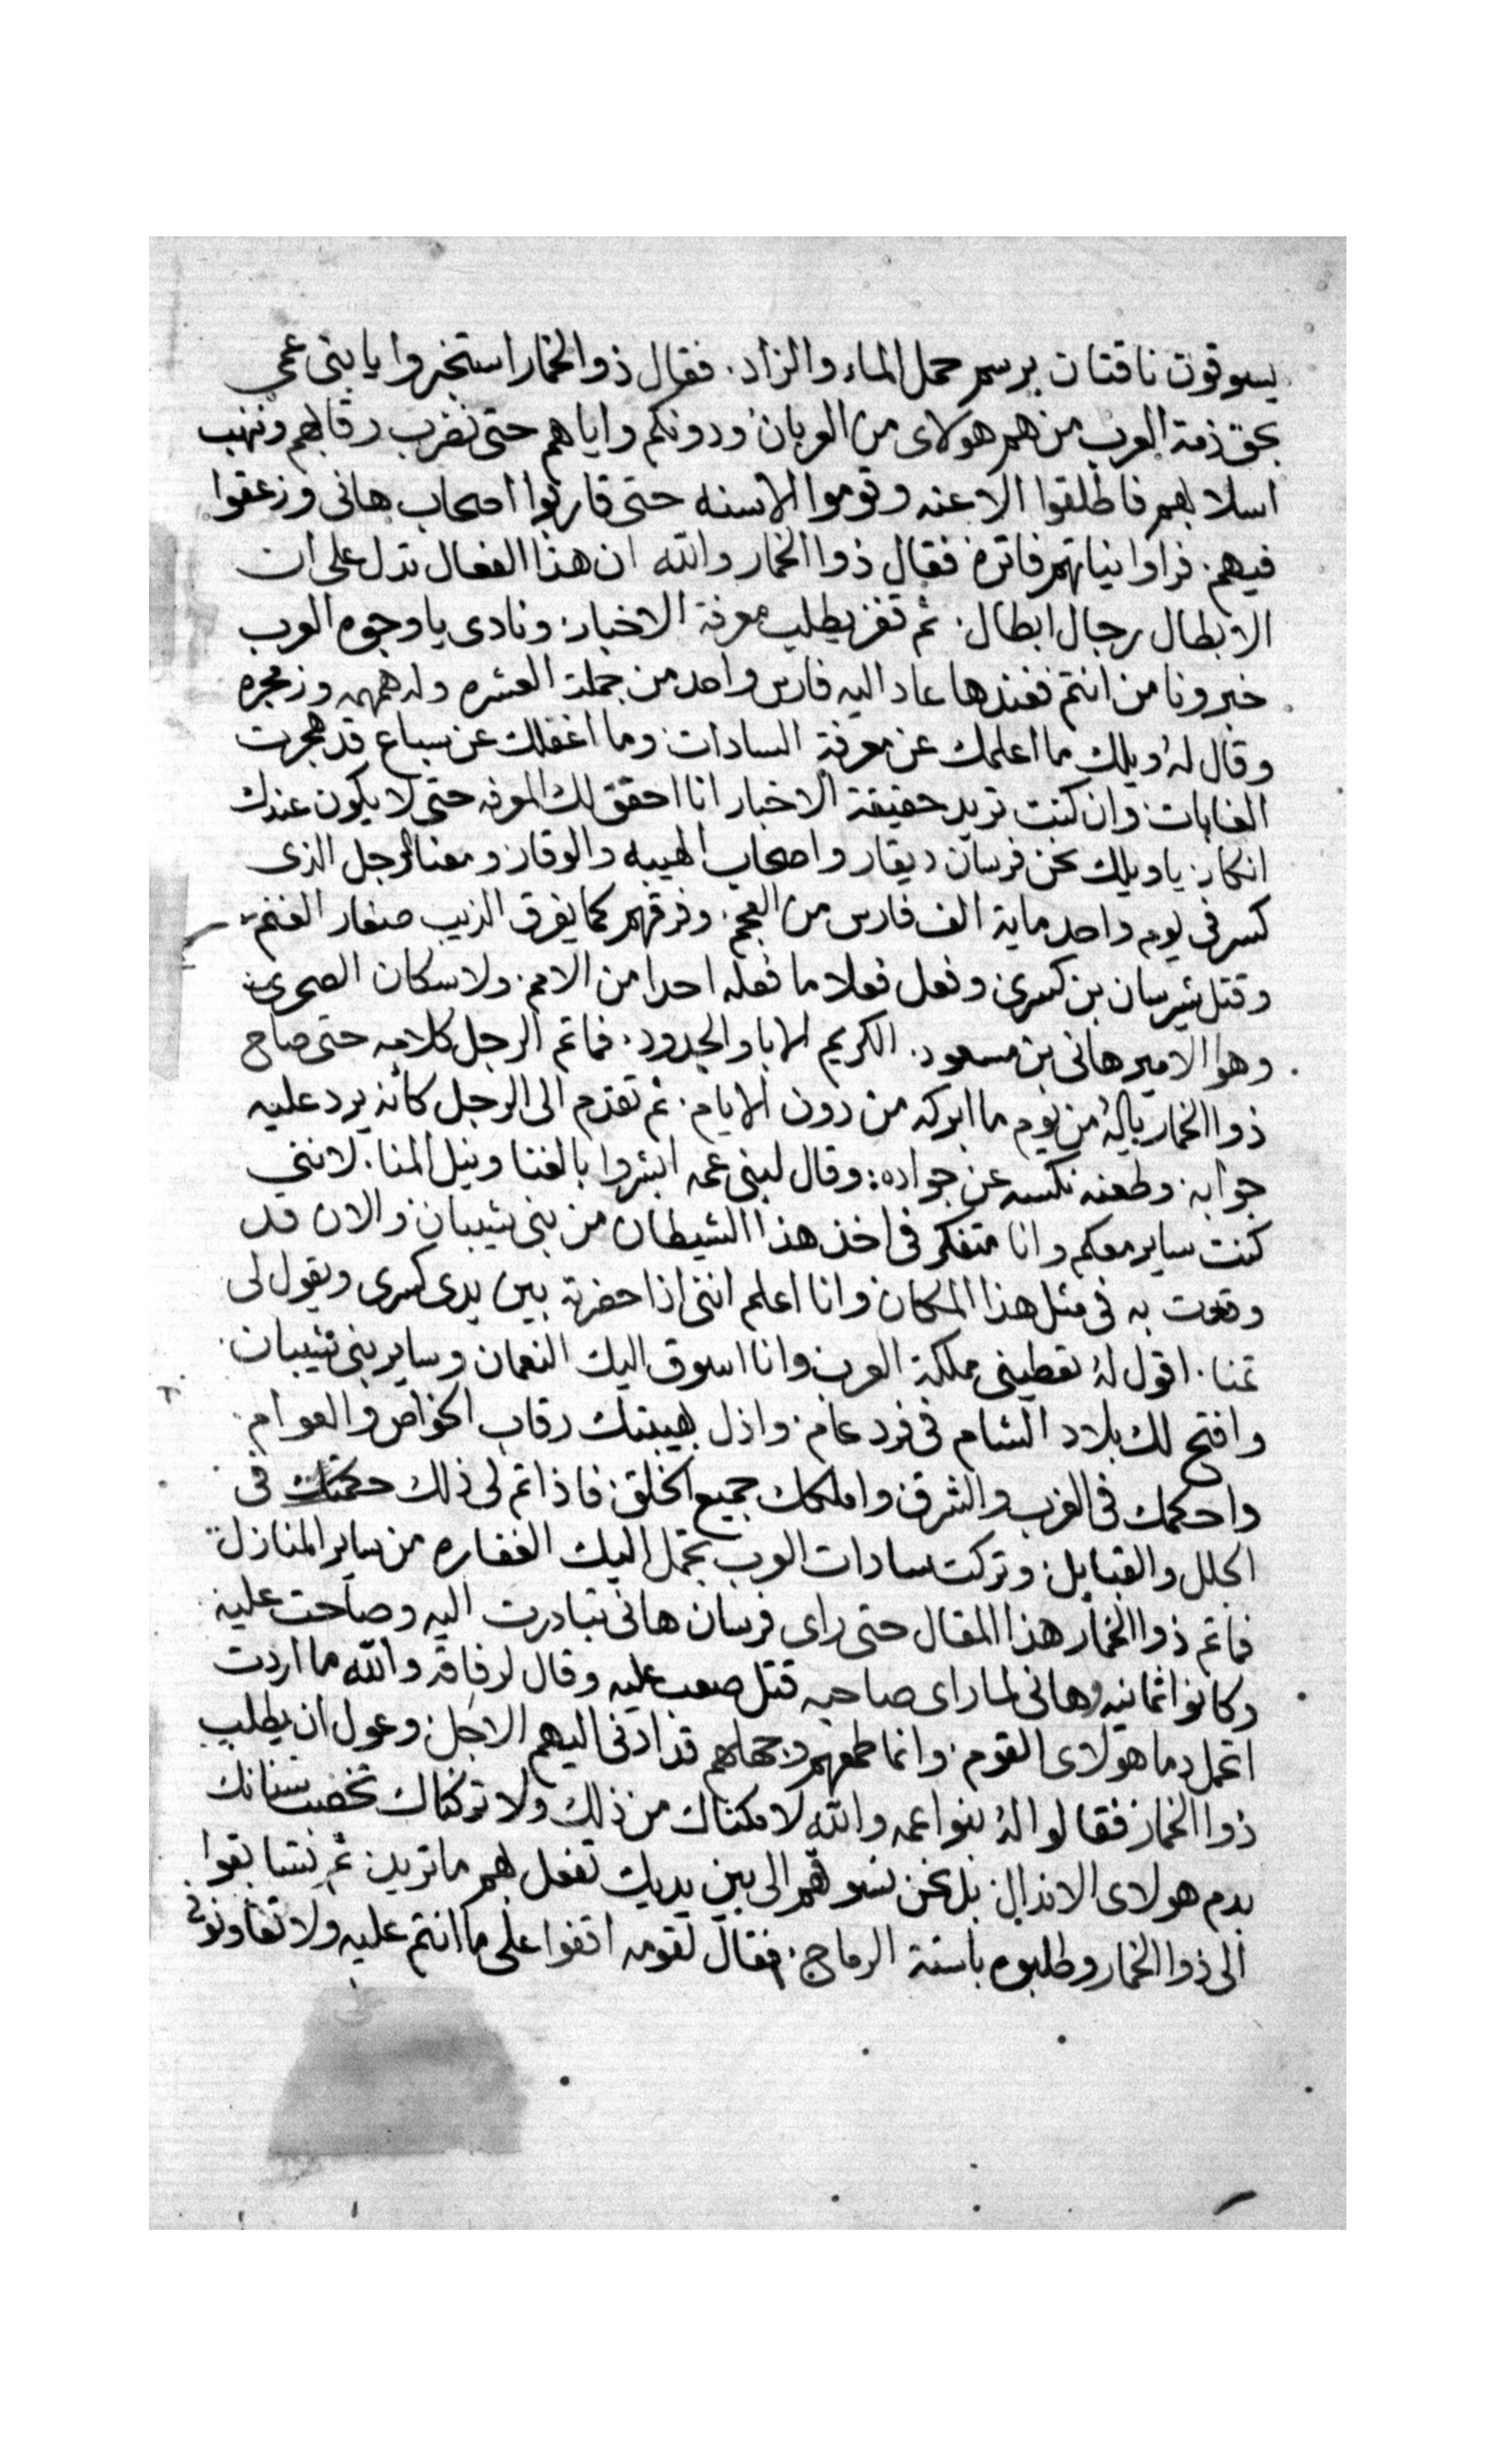 يسوقون ناقتان برسم حمل الماء والزاد. فقال ذوالخمار استخبروا يا بنى عمي
بحق ذمة العرب من هم هولاى من العربان ودونكم واياهم حتى نضرب رقابهم وننهب
اسلابهم فاطلقوا الاعنه وقوموا الاسنه حتى قاربوا اصحاب هانى وزعقوا
فيهم. فراوا نياتهم فاتره فقال ذوا الخمار والله ان هذا الفعال تدل على ان
الابطال رجال ابطال. ثم قفز يطلب معرفة الاخبار ونادى يا وجوه العرب
خبرونا من انتم فعندها عاد اليه فارس واحد من جملت العشره وله همهمه وزمجره
وقال لهُ ويلك ما اعلمك عن معرفة السادات وما اغفلك عن سباع قد هجرت
الغابات وان كنت تريد حقيقة الاخبار انا احقق لك المعرفه حتى لا يكون عندك
انكار يا ويلك نحن فرسان ديقار واصحاب الهيبه والوقار ومعنا الرجل الذى
كسر فى يوم واحد ماية الف فارس من العجم. وفرقهم كما يفرق الذيب صغار الغنم
وقتل شيرسان بن كسرى وفعل فعلا ما فعله احدا من الامم ولا سكان الصحرى
وهوا الامير هانى بن مسعود. الكريم الابا والجدود. فماتم الرجل كلامه حتى صاح
ذوا الخمار يالهُ من يوم ما ابركه من دون الايام. ثم تقدم الى الرجل كانه يرد عليه
جوابه وطعنه نكسه عن جواده: وقال لبنى عمه ابشروا بالغنا ونيل المنا. لانني
كنت ساير معكم وانا متفكر فى اخذ هذا الشيطان من بنى شيبان والان قد
وقعت به فى مثل هذا المكان وانا اعلم اننى اذا حضرته بين يدى كسرى ويقول لى
تمنا. اقول لهُ تعطينى مملكة العرب وانا اسوق اليك النعمان وساير بنى شيبان
وافتح لك بلاد الشام فى فرد عام. واذل بهيبتك رقاب الخواص والعوام
واحكمك فى الغرب والشرق واملكك جميع الخلق فاذا تم لى ذلك حكمتك فى
الحلل والقبايل وتركت سادات العرب تحمل اليك الغفاره من ساير المنازل
فماتم ذوا الخمار هذا المقال حتى راى فرسان هانى تبادرت اليه وصاحت عليه
وكانوا ثمانيه وهانى لما راى صاحبه قتل صعب عليه وقال لرفاقه والله ما اردت
اتحمل دما هولاى القوم. وانما طمعهم وجهلهم قد ادنى اليهم الاجل وعول ان يطلب
ذوا الخمار فقالوا لهُ بنوا عمه والله لا مكناك من ذلك ولا تركناك تخضب سنانك
بدم هولاى الاندال بل نحن نسوقهم الى بين يديك تفعل بهم ما تريد ثم تسابقوا
الى ذوا الخمار وطلبوه باسنة الرماح. فقال لقومه اقفوا على ما انتم عليه ولا تعاونونى